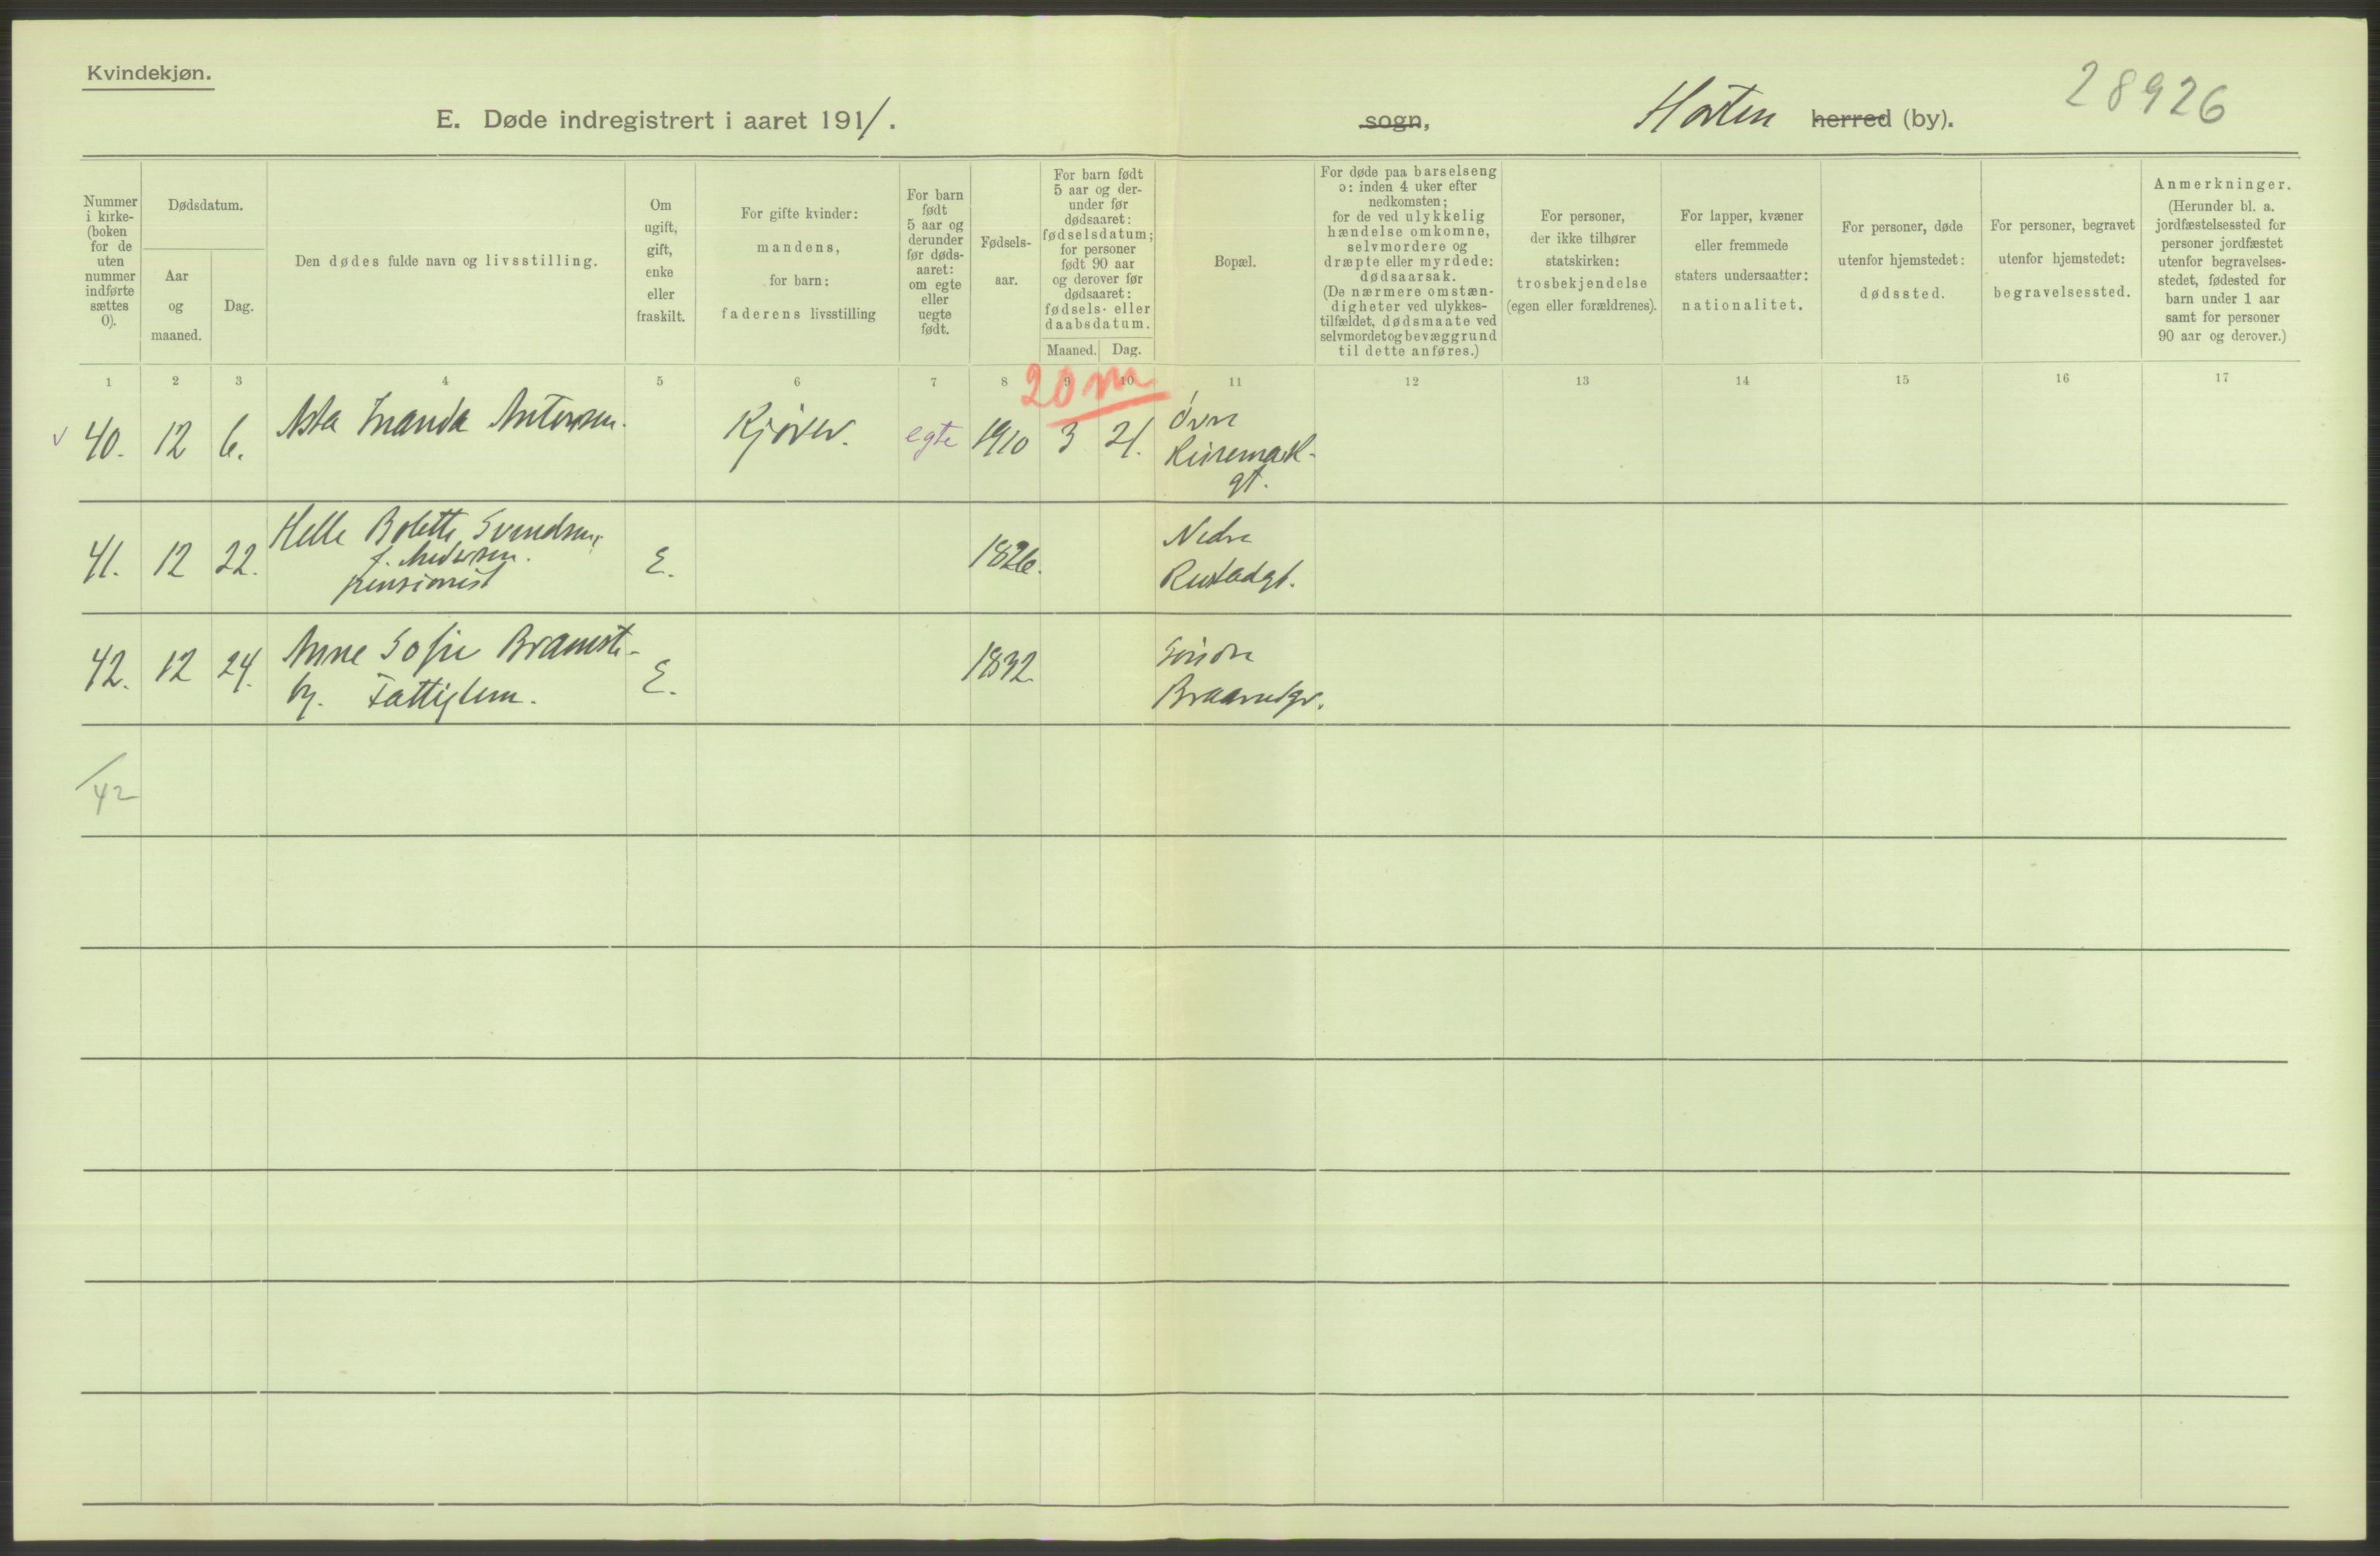 Kvindekjøn.
E. Døde indregistrert i aaret 1911.
sogn,
Horten herred (by).
28926
Nummer i kirke-(boken for de uten nummer indførte sættes 0).
Dødsdatum.
Aar og maaned.
Dag.
Den dødes fulde navn og livsstilling.
Om ugift, gift, enke eller fraskilt.
For gifte kvinder: mandens, for barn: faderens livsstilling
For barn født 5 aar og derunder før døds-aaret: om egte eller uegte født.
Fødsels-aar.
For barn født 5 aar og der-under før dødsaaret: fødselsdatum; for personer født 90 aar og derover før dødsaaret: fødsels- eller daabsdatum.
Maaned.
Dag.
Bopæl.
For døde paa barselseng ɔ: inden 4 uker efter nedkomsten; for de ved ulykkelig hændelse omkomne, selvmordere og dræpte eller myrdede: dødsaarsak. (De nærmere omstæn-digheter ved ulykkes-tilfældet, dødsmaate ved selvmordet og bevæggrund til dette anføres.)
For personer, der ikke tilhører statskirken: trosbekjendelse (egen eller forældrenes).
For lapper, kvæner eller fremmede staters undersaatter: nationalitet.
For personer, døde utenfor hjemstedet: dødssted.
For personer, begravet utenfor hjemstedet: begravelsessted.
Anmerkninger. (Herunder bl. a. jordfæstelsessted for personer jordfæstet utenfor begravelses-stedet, fødested for barn under 1 aar samt for personer 90 aar og derover.)
1 2 3 4 5 6 7 8 9 10 11 12 13 14 15 16 17
20 m
v 40. 12 6. Asta Kjøver. egte 1910 3 21. Øvre
gt.
41. 12 22. Helle Bolette Svendsen,
f.
pensionist
E. 1826. Nedre
42. 12 24. Anne Sofie Bramste-
by. Fattiglem.
E. 1832. Søndre
42